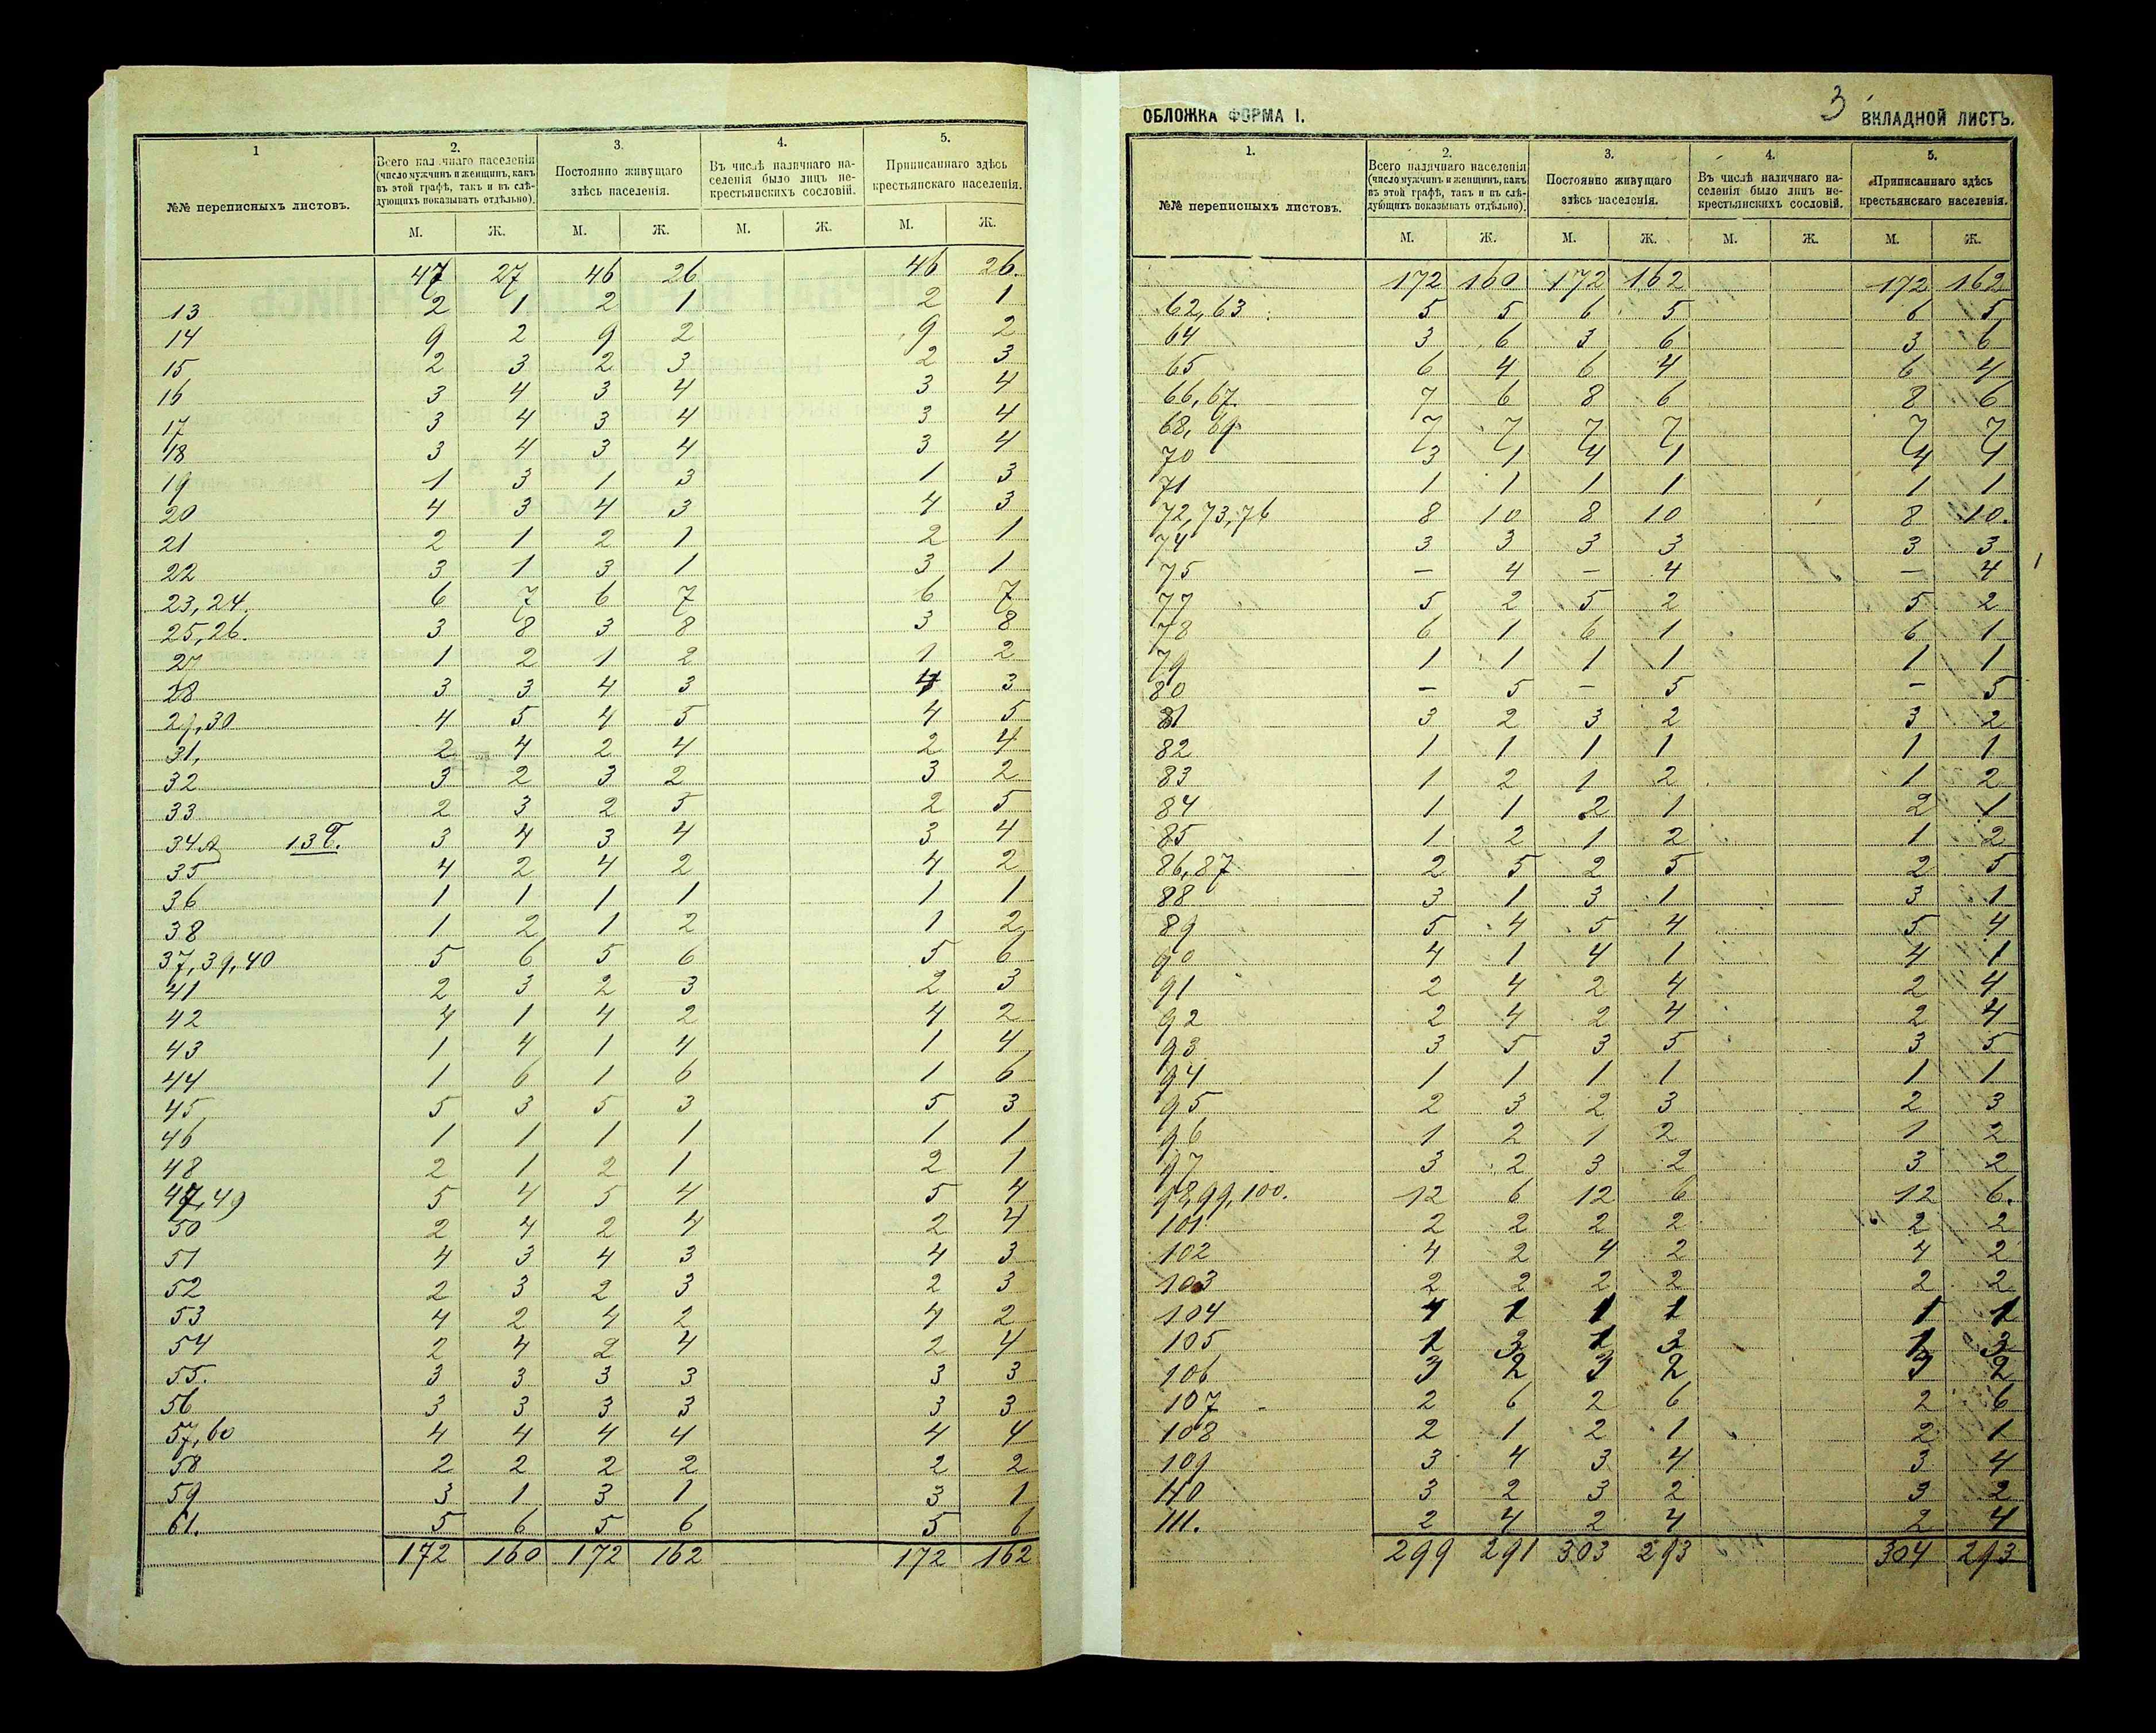 1
2.
3.
4.
5.
№№ переписныхъ листовъ.
Всего нал чнаго населенія
(число мужчинъ и женщинъ, какъ
въ этой графѣ, такъ и въ слѣ-
дующихъ показывать отдѣльно).
Постоянно живущаго
здѣсь населенія.
Въ числѣ наличнаго на-
селенія было лицъ не-
крестьянскихъ сословій.
Приписаннаго здѣсь
крестьянскаго населенія.
М. Ж. М. Ж. М. Ж. М. Ж.
47 27 46 26 46 26.
13 2 1 2 1 2 1
14 9 2 9 2 9 2
15 2 3 2 3 2 3
16 3 4 3 4 3 4
17 3 4 3 4 3 4
18 3 4 3 4 3 4
19 1 3 1 3 1 3
20 4 3 4 3 4 3
21 2 1 2 1 2 1
22 3 1 3 1 3 1
23, 24. 6 7 6 7 6 7
25, 26. 3 8 3 8 3 8
27 1 2 1 2 1 2
28 3 3 4 3 4 3
29, 30 4 5 4 5 4 5
31, 2 4 2 4 2 4
32 3 2 3 2 3 2
33 2 3 2 5 2 5
34 3 4 3 4 3 4
35 4 2 4 2 4 2
36 1 1 1 1 1 1
38 1 2 1 2 1 2
37, 39, 40 5 6 5 6 5 6
41 2 3 2 3 2 3
42 4 1 4 2 4 2
43 1 4 1 4 1 4
44 1 6 1 6 1 6
45 5 3 5 3 5 3
46 1 1 1 1 1 1
48 2 1 2 1 2 1
47, 49 5 4 5 4 5 4
50 2 4 2 4 2 4
51 4 3 4 3 4 3
52 2 3 2 3 2 3
53 4 2 4 2 4 2
54 2 4 2 4 2 4
55. 3 3 3 3 3 3
56 3 3 3 3 3 3
57, 60 4 4 4 4 4 4
58 2 2 2 2 2 2
59 3 1 3 1 3 1
61. 5 6 5 6 5 6
172 160 172 162 172 162
ОБЛОЖКА ФОРМА I.
3
ВКЛАДНОЙ ЛИСТЪ.
1.
2.
3.
4.
5.
№№ переписныхъ листовъ.
Всего наличнаго населенія
(число мужчинъ и женщинъ, какъ
въ этой графѣ, такъ и въ слѣ-
дующихъ показывать отдѣльно).
Постоянно живущаго
здѣсь населенія.
Въ числѣ наличнаго на-
селенія было лицъ не-
крестьянскихъ сословій.
Приписаннаго здѣсь
крестьянскаго населенія.
М. Ж. М. Ж. М. Ж. М. Ж.
172 160 172 162 172 162
62, 63 5 5 6 5 6 5
64 3 6 3 6 3 6
65 6 4 6 4 6 4
66, 67. 7 6 8 6 8 6
68, 69 7 7 7 7 7 7
70 3 1 4 1 4 1
71 1 1 1 1 1 1
72, 73, 76 8 10 8 10 8 10.
74 3 3 3 3 3 3
75 — 4 — 4 — 4
77 5 2 5 2 5 2
78 6 1 6 1 6 1
79 1 1 1 1 1 1
80 — 5 — 5 — 5
81 3 2 3 2 3 2
82 1 1 1 1 1 1
83 1 2 1 2 1 2
84 1 1 2 1 2 1
85 1 2 1 2 1 2
86, 87 2 5 2 5 2 5
88 3 1 3 1 3 1
89 5 4 5 4 5 4
90 4 1 4 1 4 1
91 2 4 2 4 2 4
92 2 4 2 4 2 4
93 3 5 3 5 3 5
94 1 1 1 1 1 1
95 2 3 2 3 2 3
96 1 2 1 2 1 2
97 3 2 3 2 3 2
98, 99, 100. 12 6 12 6 12 6.
101 2 2 2 2 2 2
102 4 2 4 2 4 2
103 2 2 2 2 2 2
104 1 1 1 1 1
105 1 3 1 3 1 3
106 3 2 3 2 3 2
107 2 6 2 6 2 6
108 2 1 2 1 2 1
109 3 4 3 4 3 4
110 3 2 3 2 3 2
111. 2 4 2 4 2 4
299 291 303 293 304 293